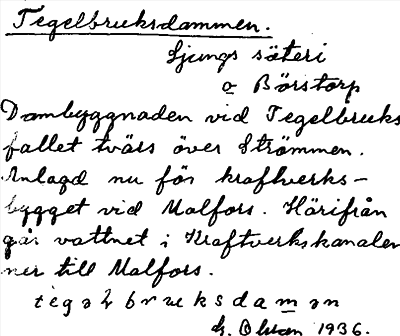 Tegelbruksdammen.
Ljungs säteri
o Börstorp
Dambyggnaden vid Tegelbruks
fallet tvärs över Strömmen.
Anlagd nu för kraftverks-
bygget vid Malfors. Härifrån
går vattnet i Kraftverkskanalen
ner till Malfors.
1936.